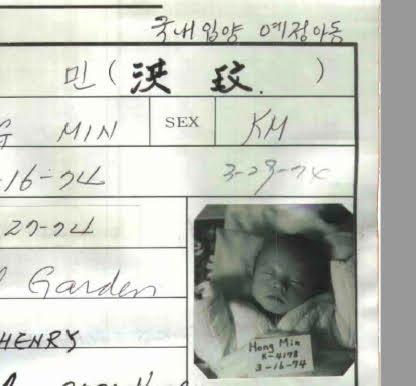 국내입양 예정아동
민 ( 洪 玟. )
MIN SEX KM
-16-74 3-29-74
27-74
Garden
HENRY
Hong Min
K-4178
3-16-74